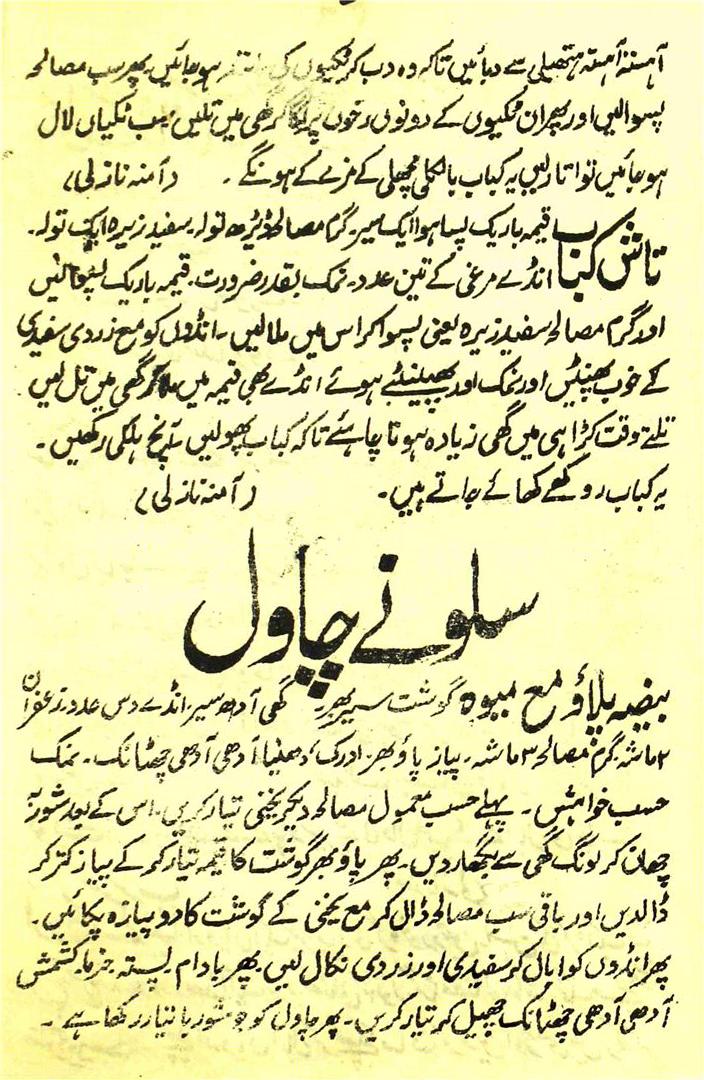 آہستہ آہستہ ہتھیلی سے دبائیں تاکہ وہ دب کر ٹکیوں کی ہو جائیں۔ پھر سب مصالحہ
پسوالیں اور پھر ان ٹکیوں کے دونوں رخوں پر لگا کر گھی میں تلیں جب ٹکیاں لال
ہو جائیں تو اتار لیں یہ کباب بالکل مچھلی کے مزے کے ہونگے۔ (آمنہ نازلی)
تاش کباب قیمہ باریک پسا ہوا ایک سیر۔ گرم مصالحہ ڈیڑھ تولہ۔ سفید زیرہ ایک تولہ۔
انڈے مرغی کے تین عدد۔ نمک بقدر ضرورت۔ قیمہ باریک پسوالیں
اور گرم مصالحہ سفید زیرہ یعنی پسوا کر اس میں ملالیں۔ انڈوں کو مع زردی سفیدی
کے خوب پھینٹیں اور نمک اور پھینٹے ہوئے انڈے بھی قیمہ میں ملا کر گھی میں تل لیں
تلتے وقت کڑاہی میں گھی زیادہ ہونا چاہئے تاکہ کباب پھولیں۔ آنچ ہلکی رکھیں۔
یہ کباب روکھے کھائے جاتے ہیں۔ (آمنہ نازلی)
سلونے چاول
بیضہ پلاؤ مع میوہ گوشت سیر بھر۔ گھی آدھ سیر۔ انڈے دس عدد زعفران
۲ ماشہ۔ گرم مصالحہ ۳ ماشہ۔ پیاز پاؤ بھر۔ ادرک، دھنیا آدھی آدھی چھٹانک۔ نمک
حسب خواہش۔ پہلے حسب معمول مصالحہ دیکر یخنی تیار کریں۔ اس کے بعد شوربہ
چھان کر لونگ گھی سے بگھار دیں۔ پھر پاؤ بھر گوشت کا قیمہ تیار کر کے پیاز کتر کر
ڈالدیں اور باقی سب مصالحہ ڈال کر مع یخنی کے گوشت کا دو پیازہ پکائیں۔
پھر انڈوں کو ابال کر سفیدی اور زردی نکال لیں۔ پھر بادام پستہ خرما کشمش
آدھی آدھی چھٹانک چھیل کر تیار کریں۔ پھر چاول کو جو شوربا تیار رکھا ہے۔